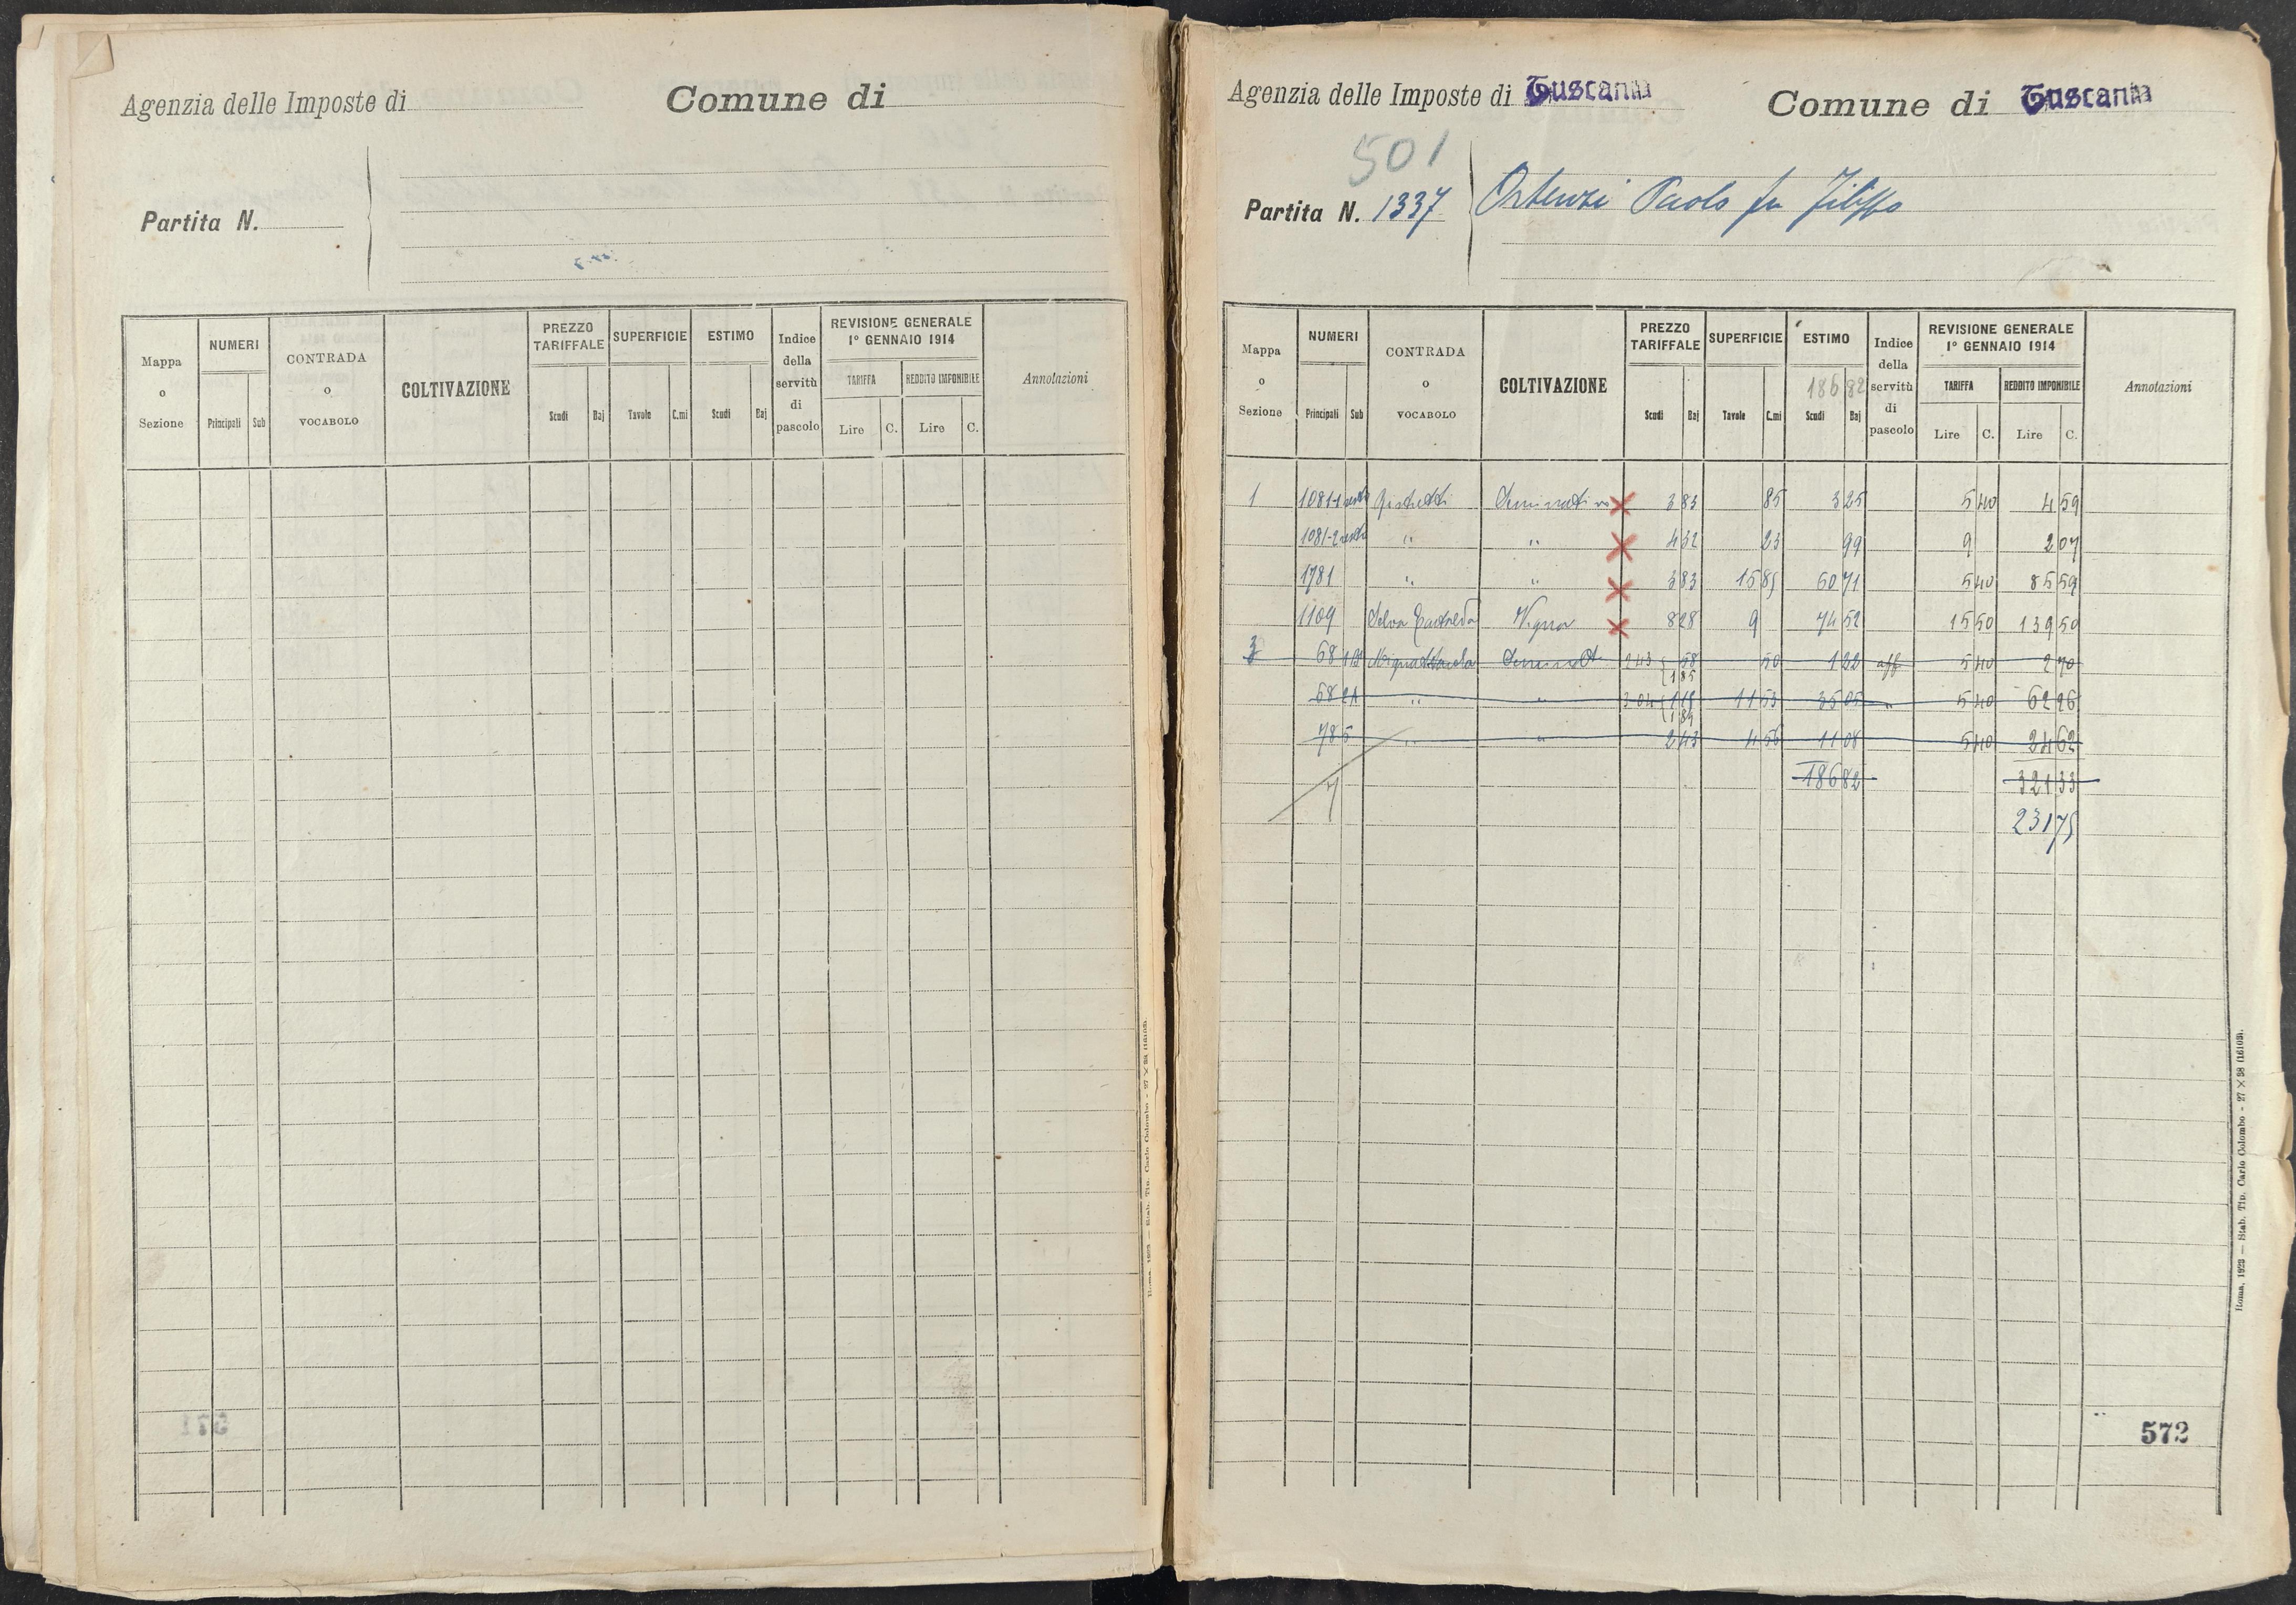 Agenzia delle Imposte di
Comune di
Partita N.
Mappa o Sezione
NUMERI
Principali Sub
CONTRADA o VOCABOLO
COLTIVAZIONE
PREZZO TARIFFALE
Scudi Baj
SUPERFICIE
Tavole C.mi
ESTIMO
Scudi Baj
Indice della servitù di pascolo
REVISIONE GENERALE
1° GENNAIO 1914
TARIFFA
Lire C.
REDDITO IMPONIBILE
Lire C.
Annotazioni
571
Agenzia delle Imposte di Tuscania
Comune di Tuscania
501
Partita N. 1337 Ortenzi Paolo fu Filippo
Mappa o Sezione
NUMERI
Principali Sub
CONTRADA o VOCABOLO
COLTIVAZIONE
PREZZO TARIFFALE
Scudi Baj
SUPERFICIE
Tavole C.mi
ESTIMO
186 82
Scudi Baj
Indice della servitù di pascolo
REVISIONE GENERALE
1° GENNAIO 1914
TARIFFA
Lire C.
REDDITO IMPONIBILE
Lire C.
Annotazioni
1 1081-1 Seminativo 3 83 85 3 25 5 40 4 59
1081-2 " " 4 32 23 99 9 2 07
1781 " " 3 83 15 85 60 71 5 40 85 59
1109 Selva Vigna 8 28 9 74 52 15 50 139 50
3 68 Seminat 2 43 58 50 1 22 aff 5 40 2 70
1 85
68 2A " " 3 04 11 53 35 05 " 5 40 62 26
1 84
785 " " 2 43 4 56 11 08 5 40 24 62
186 82 321 33
7
231 75
572
Roma, 1923 — Stab. Tip. Carlo Colombo - 27 × 38 (16103).